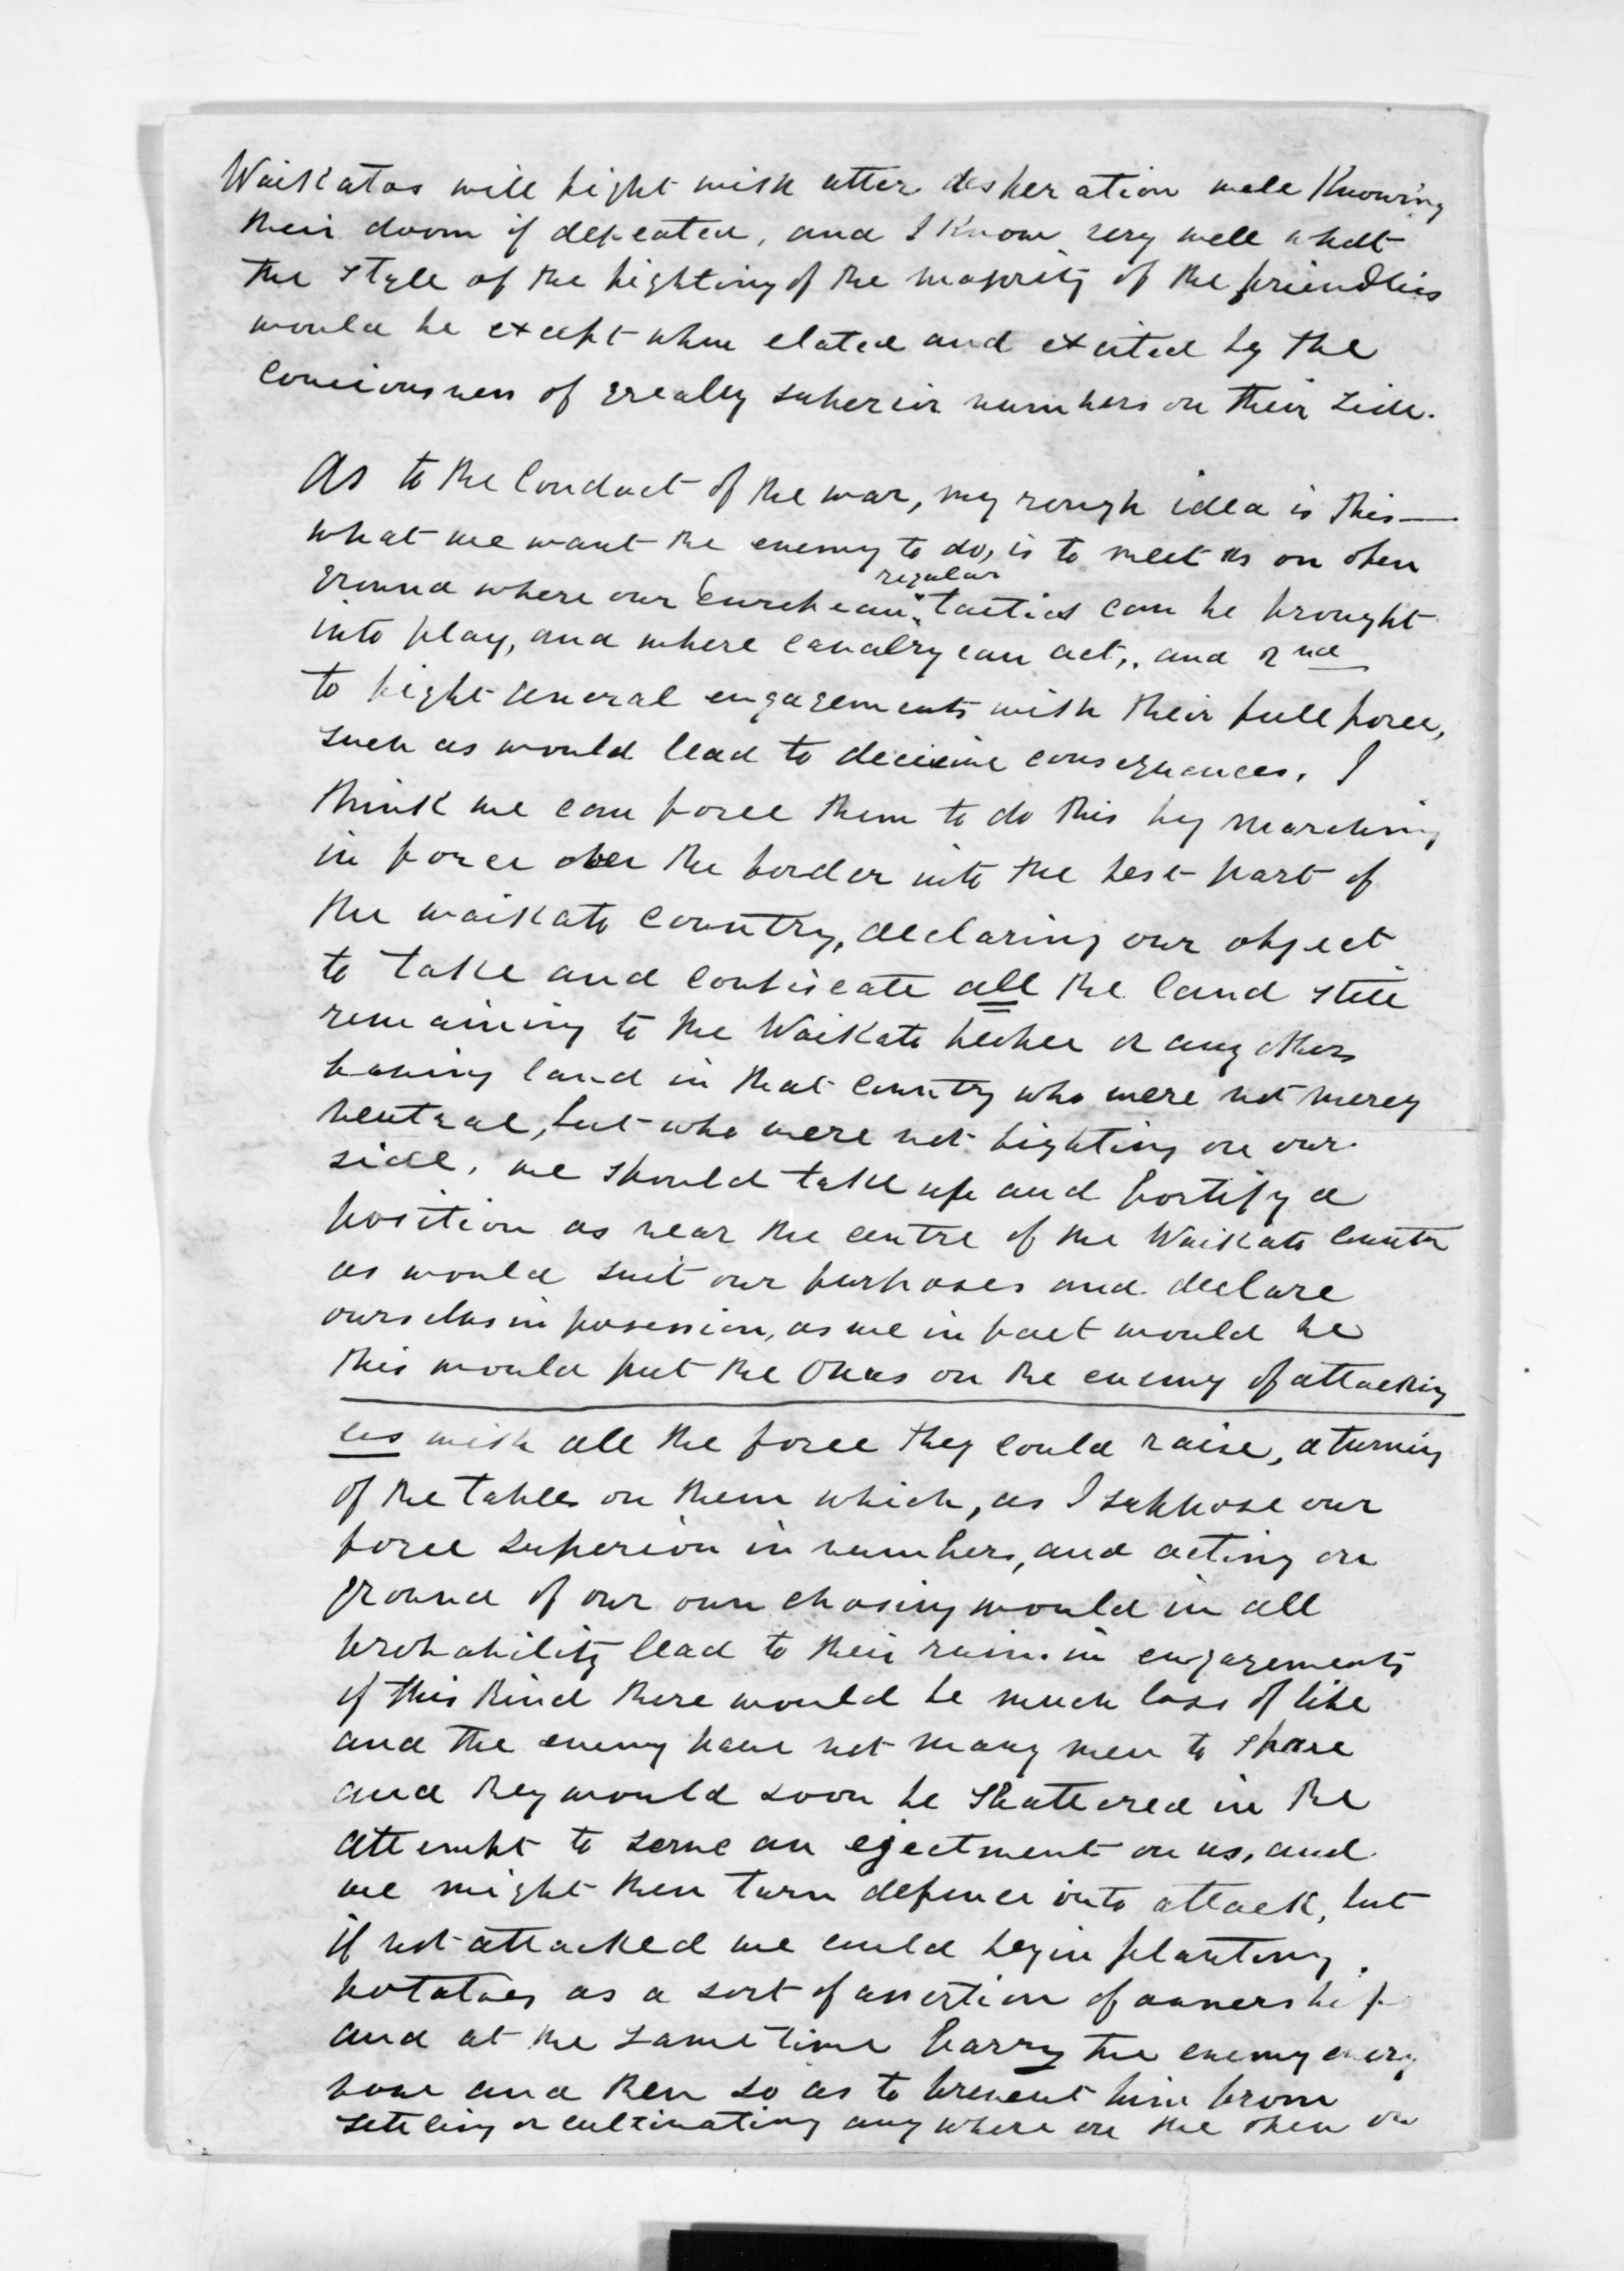 Waikatos will fight with utter desperation well Knowing
their doom if defeated, and I Know very well what
the style of the fighting of the majority of the friendlies
would be except when elated and excited by the
conciousness of greatly superior numbers on their side.
As to the Conduct of the war, my rough idea is this—
what we want the enemy to do, is to meet us on open
regular
ground where our European tactics can be brought
into play, and where cavalry can act,. and 2nd
to fight General engagements with their full force,
such as would lead to decisive consequences. I
think we can force them to do this by marching
in force over the border into the best part of
the Waikato Country, declaring our object
to take and confiscate all the land still
remaining to the Waikato people or any others
having land in that Country who were not merely
neutral, but who were not fighting on our
side. we should take up and fortify a
position as near the centre of the Waikato Country
as would suit our purposes and declare
ourselves in posession, as we in fact would be
this would put the Onus on the enemy of attacking
us with all the force they could raise, a turning
of the tables on them which, as I suppose our
force superior in numbers, and acting on
ground of our own chosing would in all
probability lead to their ruin. in engagements
of this Kind there would be much loss of life
and the enemy have not many men to spare
and they would soon be shattered in the
attempt to serve an ejectment on us, and
we might then turn defence into attack, but
if not attacked we could begin planting
potatoes as a sort of assertion of ownership
and at the same time harry the enemy every
now and then so as to prevent him from
setteling or cultivating any where on the open or